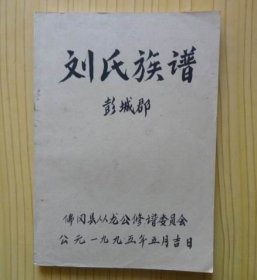 刘氏族谱
彭城郡
佛冈县从龙公修谱委员会
公元一九九五年五月吉日